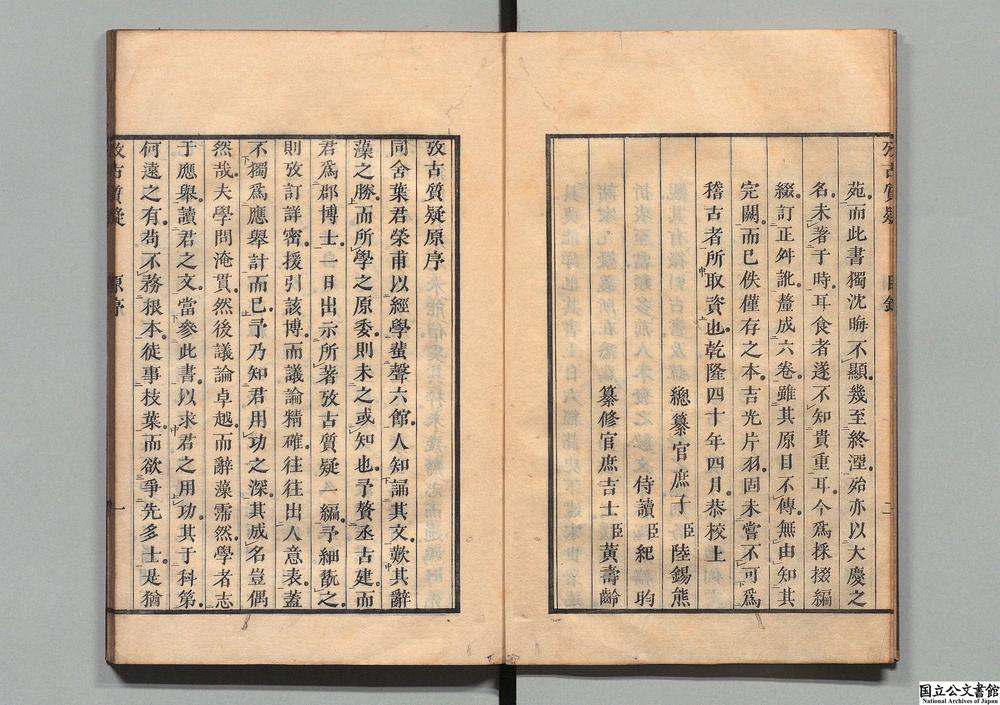 苑而此書獨沈晦不顯幾至終湮殆亦以大慶之
名未著于時耳食者遂不知貴重耳今為採掇編
綴訂正舛訛釐成六卷雖其原目不傳無由知其
完闕而已佚僅存之本吉光片羽固未嘗不可為
稽古者所取資也乾隆四十年四月恭校上
總纂官庶子臣陸錫熊
侍讀臣紀昀
纂修官庶吉士臣黃壽齡
攷古質疑 目錄 二
攷古質疑原序
同舍葉君榮甫以經學蜚聲六館人知誦其文歎其辭
藻之勝而所學之原委則未之或知也予贅丞古建而
君為郡博士一日出示所著攷古質疑一編予細翫之
則攷訂詳密援引該博而議論精確往往出人意表蓋
不獨為應舉計而已予乃知君用功之深其成名豈偶
然哉夫學問淹貫然後議論卓越而辭藻霈然學者志
于應舉讀君之文當參此書以求君之用功其于科第
何遠之有苟不務根本徒事枝葉而欲爭先多士是猶
攷古質疑 原序 一
国立公文書館
National Archives of Japan